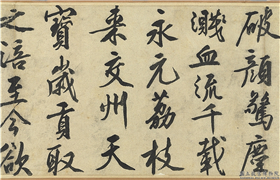 破顏驚塵
濺血流千載
永元荔枝
來交州天
寶歲貢取
之涪至今欲